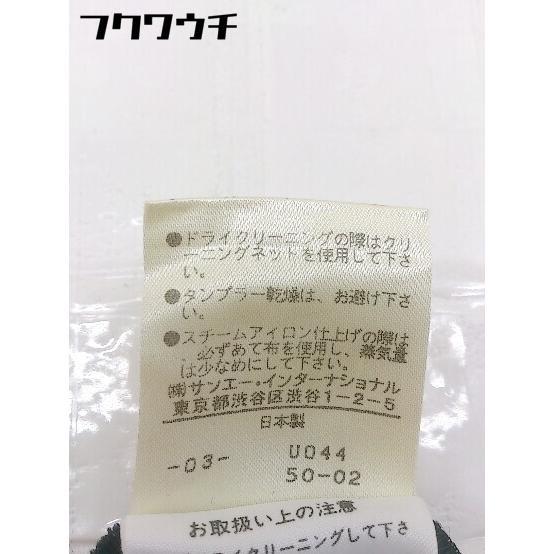 フクワウチ
●ドライクリーニングの際はクリ
ーニングネットを使用して下さ
い。
●タンブラー乾燥は、お避け下さ
い。
●スチームアイロン仕上げの際は
、必ずあて布を使用し、蒸気量
は少なめにして下さい。
㈱サンエー・インターナショナル
東京都渋谷区渋谷1-2-5
日本製
-03-
U044
50-02
お取扱い上の注意
ドライクリーニングして下さ